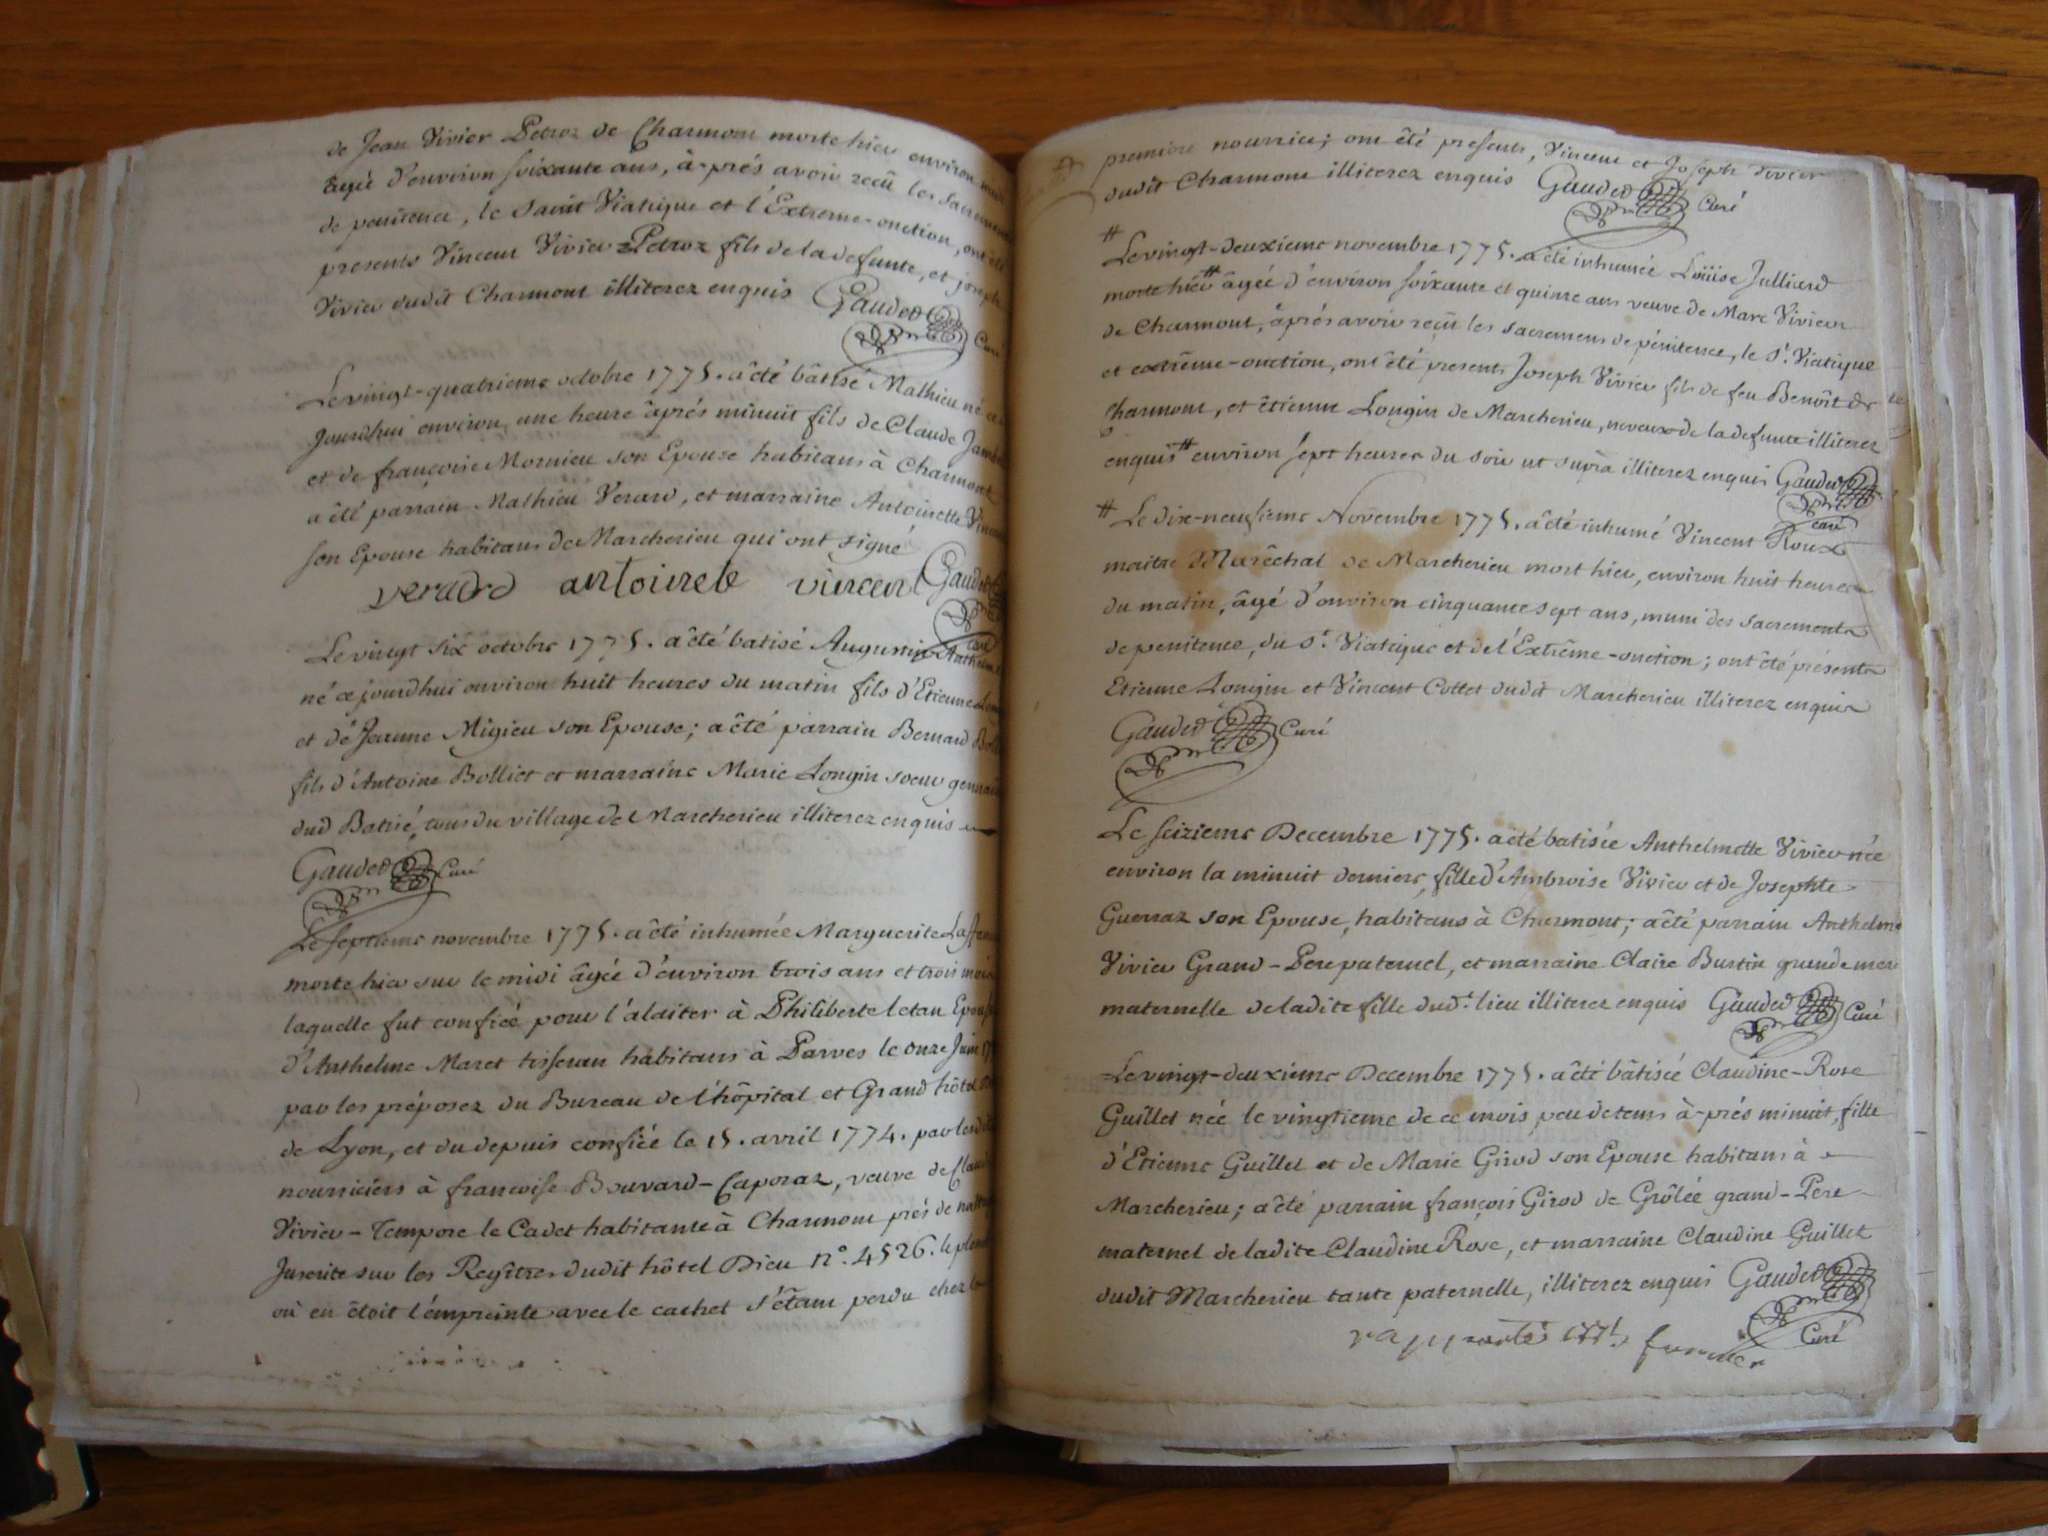 de Jean Vivier Petroz de Charmont morte hier environ
âgée d'environ soixante ans, à-prés avoir recû les Sacremens
de penitence, le Saint Viatique et l'Extreme-onction, ont été
presents Vincent Vivier Petroz fils de la defunte, et joseph
Vivier dudit Charmont illiterez enquis Gauded Curé
Le vingt-quatrieme octobre 1775. a êté bâtisé Mathieu né ce
jourd'hui environ une heure âprés minuit fils de Claude
et de françoise Mornieu son Epouse habitans à Charmont
a êté parrain Mathieu Verard, et marraine Antoinette Vincent
son Epouse habitans de Marcherieu qui ont signé
verard antoinete vincent Gauded
curé
Le vingt six octobre 1775. a êté batisé Augustin Anthelme
né ce jourdhui environ huit heures du matin fils d'Etienne
et de Jeanne Migieu son Epouse; a êté parrain Bernard
fils d'Antoine Bolliet et marraine Marie Longin soeur germaine
dud Batisé, tous du village de Marcherieu illiterez enquis
Gauded Curé
Le septieme novembre 1775. a êté inhumée Marguerite
morte hier sur le midi âgée d'environ trois ans et trois mois
laquelle fut confiée pour l'alaiter à Philiberte letan Epouse
d'Anthelme Maret tisseran habitans à Parves le onze Juin
par les préposez du Bureau de l'hôpital et Grand hôtel
de Lyon, et du depuis confiée le 15. avril 1774. par lesdits
nourriciers à françoise Bouvard-Caporaz, veuve de
Vivier-Tempore le Cadet habitante à Charmont prés de
Inscrite sur les Regîtres dudit hôtel Dieu n°. 4526. le plomb
où en êtoit l'émpreinte avec le cachet s'êtant perdu chez la
premiere nourrice; ont été presents, Vincent et Joseph Vivier
dudit Charmont illiterez enquis Gauded Curé
# Le vingt-deuxieme novembre 1775. a êté inhumée Loüise Julliard
morte hier # âgée d'environ soixante et quinze ans veuve de Marc Vivier
de Charmont, âprés avoir reçû les sacremens de pénitence, le St. Viatique
et extrême-onction, ont êté presents Joseph Vivier fils de feu Benoît de
Charmont, et êtienne Longin de Marcherieu, neveux de la defunte illiterez
enquis # environ sept heures du soir ut suprà illiterez enquis Gauded
curé
# Le dix-neufieme Novembre 1775. a êté inhumé Vincent Roux
maitre Marêchal de Marcherieu mort hier, environ huit heures
du matin, âgé d'environ cinquante sept ans, muni des sacrements
de penitence, du St. Viatique et de l'Extrême-onction; ont êté présents
Etienne Longin et Vincent Cottet dudit Marcherieu illiterez enquis
Gauded Curé
Le seizieme Decembre 1775. a êté batisée Anthelmette Vivier née
environ la minuit derniere, fille d'Ambroise Vivier et de Josephte
Guerraz son Epouse, habitans à Charmont; a êté parrain Anthelme
Vivier Grand-Pere paternel, et marraine Claire Burtin grande mere
maternelle de ladite fille dudt. lieu illiterez enquis Gauded Curé
Le vingt-deuxieme Decembre 1775. a êté bâtisée Claudine-Rose
Guillet née le vingtieme de ce mois, peu de tems à-prés minuit, fille
d'Etienne Guillet et de Marie Girod son Epouse habitans à
Marcherieu; a êté parrain françois Girod de Grôlée grand-Pere
maternel de ladite Claudine Rose, et marraine Claudine Guillet
dudit Marcherieu tante paternelle, illiterez enquis Gauded
Curé